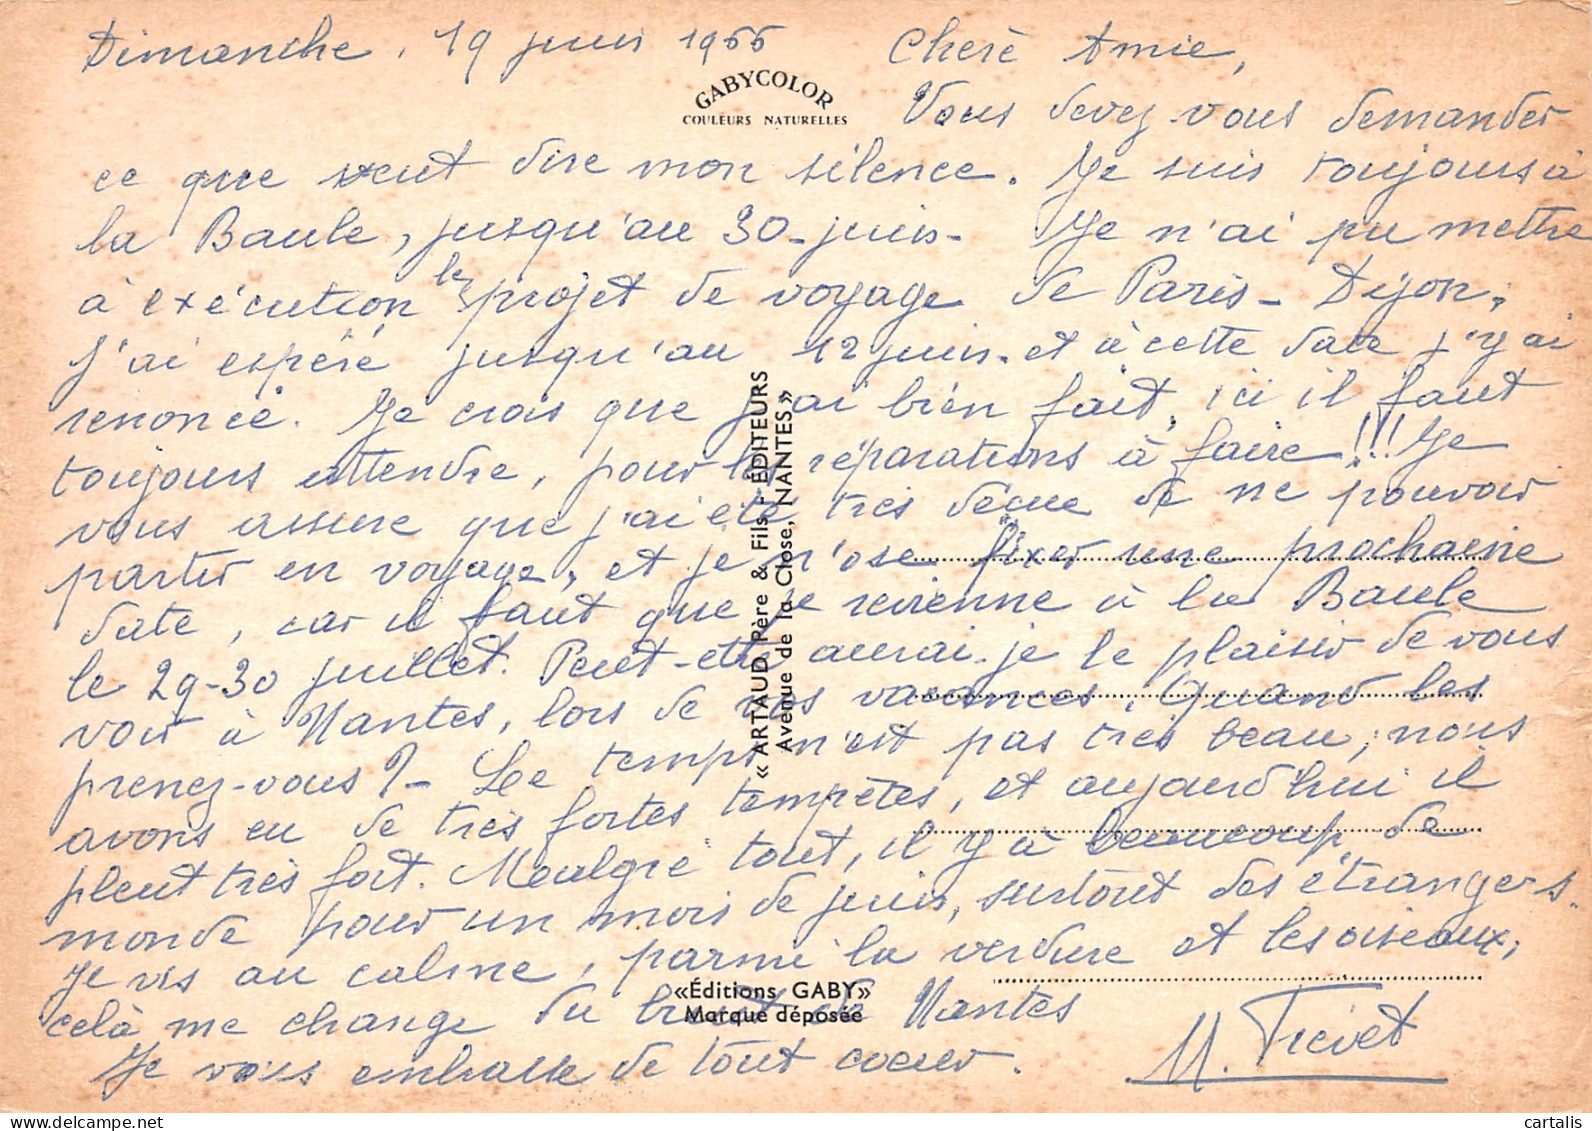 Dimanche, 19 juin 1966
Cherè Amie,
GABYCOLOR
COULEURS NATURELLES
Vous devez vous demander
ce que veut dire mon silence. Je suis toujours à
la Baule, jusqu'au 30-juin- Je n'ai pu mettre
à exécution le projet de voyage de Paris- Dijon,
J'ai espéré jusqu'au 12 juin- et à cette date j'y ai
renoncé. Je crois que j'ai bien fait, ici il faut
toujours attendre, pour les réparations à faire!!! Je
vous assure que j'ai été très déçue de ne pouvoir
partir en voyage, et je n'ose fixer une prochaine
date, car il faut que je revienne à la Baule
le 29-30 juillet. Peut-etre aurai-je le plaisir de vous
voir à Nantes, lors de vos vacances. Quand les
prenez-vous? - Le temps n'est pas très beau, nous
avons eu de très fortes tempêtes, et aujourd'hui il
pleut très fort. Malgré tout, il y à beaucoup de
monde pour un mois de juin, surtout des étrangers.
Je vis au calme, parmi la verdure et les oiseaux,
celà me change du bruit de Nantes
Je vous embrasse de tout coeur.
M. Trevet
« ARTAUD Père & Fils - ÉDITEURS
Avenue de la Close, NANTES »
«Éditions GABY»
Marque déposée
delcampe.net
cartalis